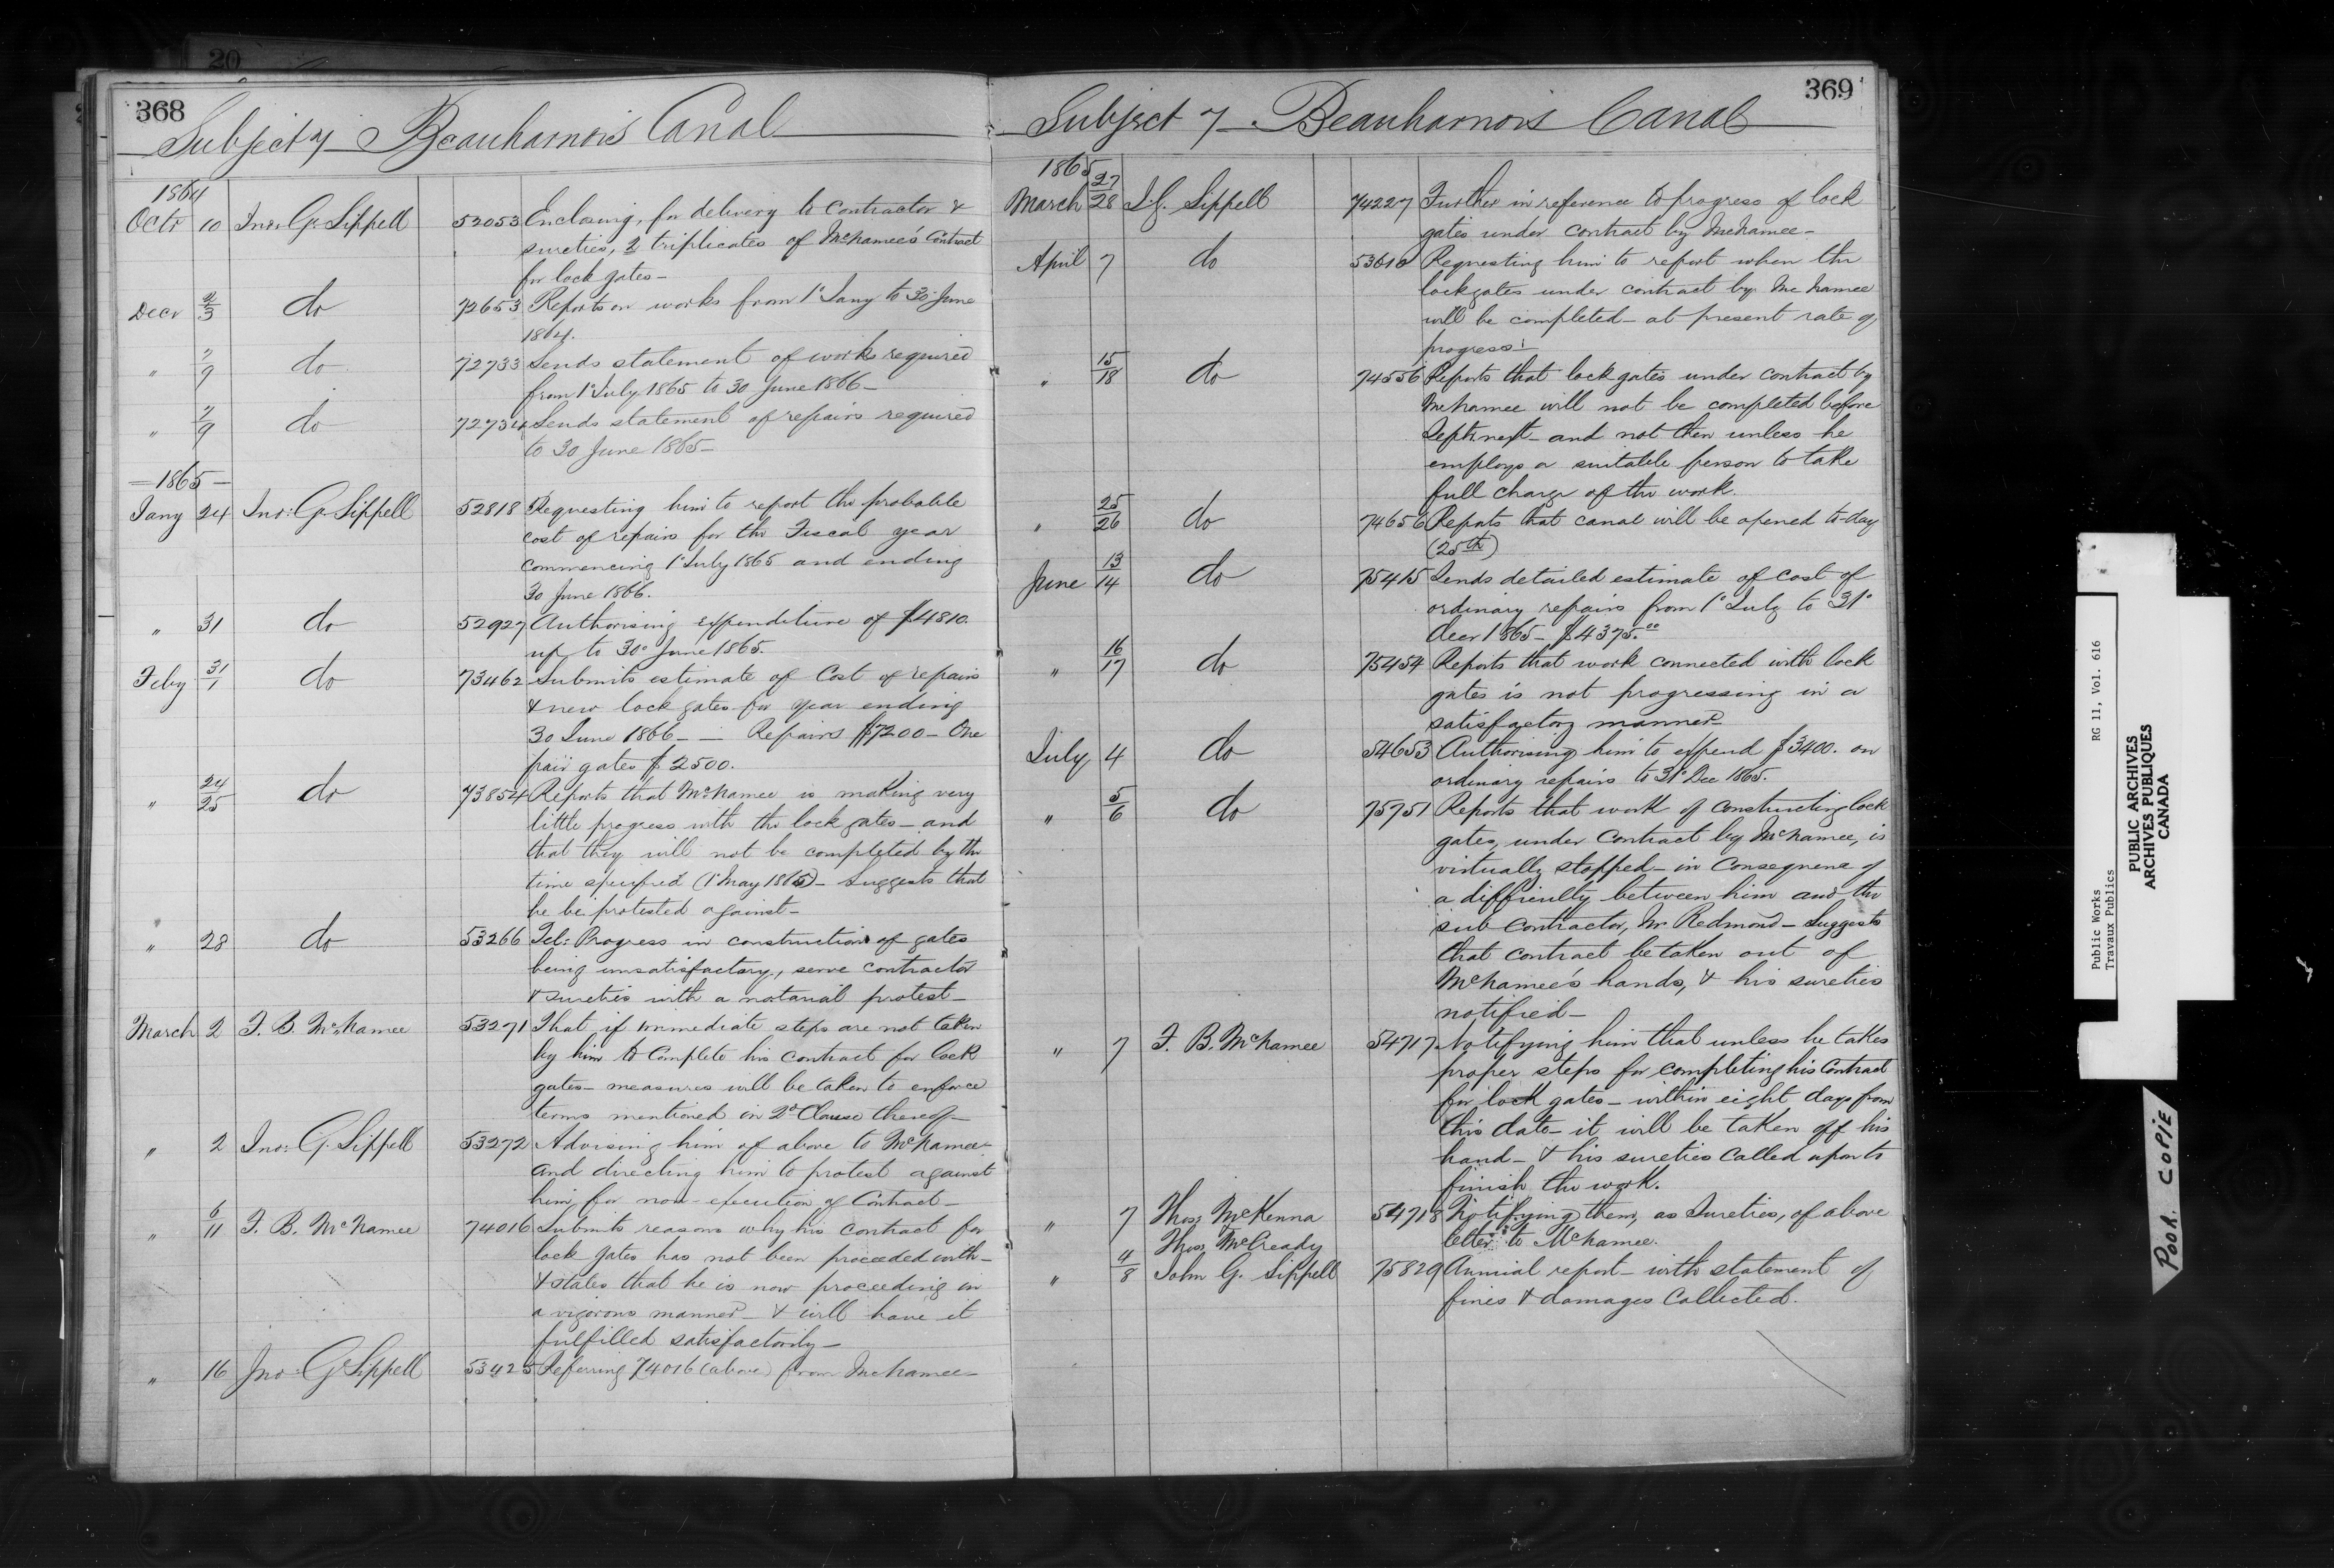 20
368
Subject 7 Beauharnois Canal
1864
Octr 10 Jno: G. Sippell 52053 Enclosing, for delivery to contractor &
sureties, 2 triplicates of McNamee's Contract
for lock gates—
Decr 2/3 do 72653 Reports on works from 1st Jany to 30 June
1864.
" 7/9 do 72733 Sends statement of works required
from 1st July 1865 to 30 June 1866—
" 7/9 do 72734 Sends statement of repairs required
to 30 June 1865—
—1865—
Jany 24 Jno: G. Sippell 52818 Requesting him to report the probable
cost of repairs for the Fiscal year
commencing 1st July 1865 and ending
30 June 1866.
" 31 do 52927 Authorising expenditure of $4810.
up to 30th June 1865.
Feby 31/1 do 73462 Submits estimate of Cost of repairs
& new lock gates for year ending
30 June 1866— — Repairs $7200— One
pair gates $2500.
" 24/25 do 73854 Reports that McNamee is making very
little progress with the lock gates— and
that they will not be completed by the
time specified (1st May 1865)— Suggests that
he be protested against—
" 28 do 53266 Tel: Progress in construction of gates
being unsatisfactory, serve contractor
& sureties with a notarial protest—
March 2 F. B. McNamee 53271 That if immediate steps are not taken
by him to complete his contract for lock
gates— measures will be taken to enforce
terms mentioned in 2d Clause thereof—
" 2 Jno: G. Sippell 53272 Advising him of above to McNamee
and directing him to protest against
him for non-execution of Contract—
" 6/11 F. B. McNamee 74016 Submits reasons why his contract for
lock gates has not been proceeded with—
& states that he is now proceeding in
a vigorous manner— & will have it
fulfilled satisfactorily—
" 16 Jno: G. Sippell 53425 Referring 74016 (above) from McNamee—
369
Subject 7 Beauharnois Canal
1865
March 27/28 J. G. Sippell 74227 Further in reference to progress of lock
gates under contract by McNamee—
April 7 do 53610 Requesting him to report when the
lockgates under contract by McNamee
will be completed— at present rate of
progress—
" 15/18 do 74556 Reports that lock gates under contract by
McNamee will not be completed before
Septr next— and not then unless he
employs a suitable person to take
full charge of the work.
" 25/26 do 74656 Reports that canal will be opened to-day
(25th)
June 13/14 do 75415 Sends detailed estimate of cost of
ordinary repairs from 1st July to 31st
Decr 1865— $4375.00
" 16/17 do 75454 Reports that work connected with lock
gates is not progressing in a
satisfactory manner—
July 4 do 54653 Authorising him to expend $3400. on
ordinary repairs to 31st Dec 1865.
" 5/6 do 75751 Reports that work of constructing lock
gates, under Contract by McNamee, is
virtually stopped— in consequence of
a difficulty between him and the
sub contractor, Mr Redmond— Suggests
that contract be taken out of
McNamee's hands, & his sureties
notified—
" 7 F. B. McNamee 54717 Notifying him that unless he takes
proper steps for completing his Contract
for lock gates— within eight days from
this date— it will be taken off his
hand— & his sureties called upon to
finish the work.
" 7 Thos: McKenna 54718 Notifying them, as Sureties, of above
Thos McCready letter to McNamee.
" 4/8 John G. Sippell 75829 Annual report— with statement of
fines & damages Collected.
Public Works RG 11, Vol. 616
Travaux Publics
PUBLIC ARCHIVES
ARCHIVES PUBLIQUES
CANADA
POOR COPIE